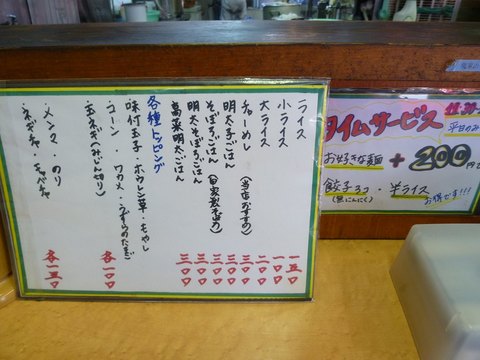 ライス 一五〇
小ライス 一〇〇
大ライス 二〇〇
チャーめし (当店おすすめ) 三〇〇
明太子ごはん 三〇〇
そぼろごはん (自家製手造り) 三〇〇
明太そぼろごはん 三〇〇
高菜明太ごはん 三〇〇
各種トッピング
味付玉子・ホウレン草・もやし
コーン・ワカメ・うずらのたまご 各一〇〇
玉ネギ(みじん切り)
メンマ・のり
ネギ・キャベツ 各一五〇
タイムサービス
平日のみ
お好きな麺 + 200円
餃子3コ・半ライス
(無にんにく) お得です!!!